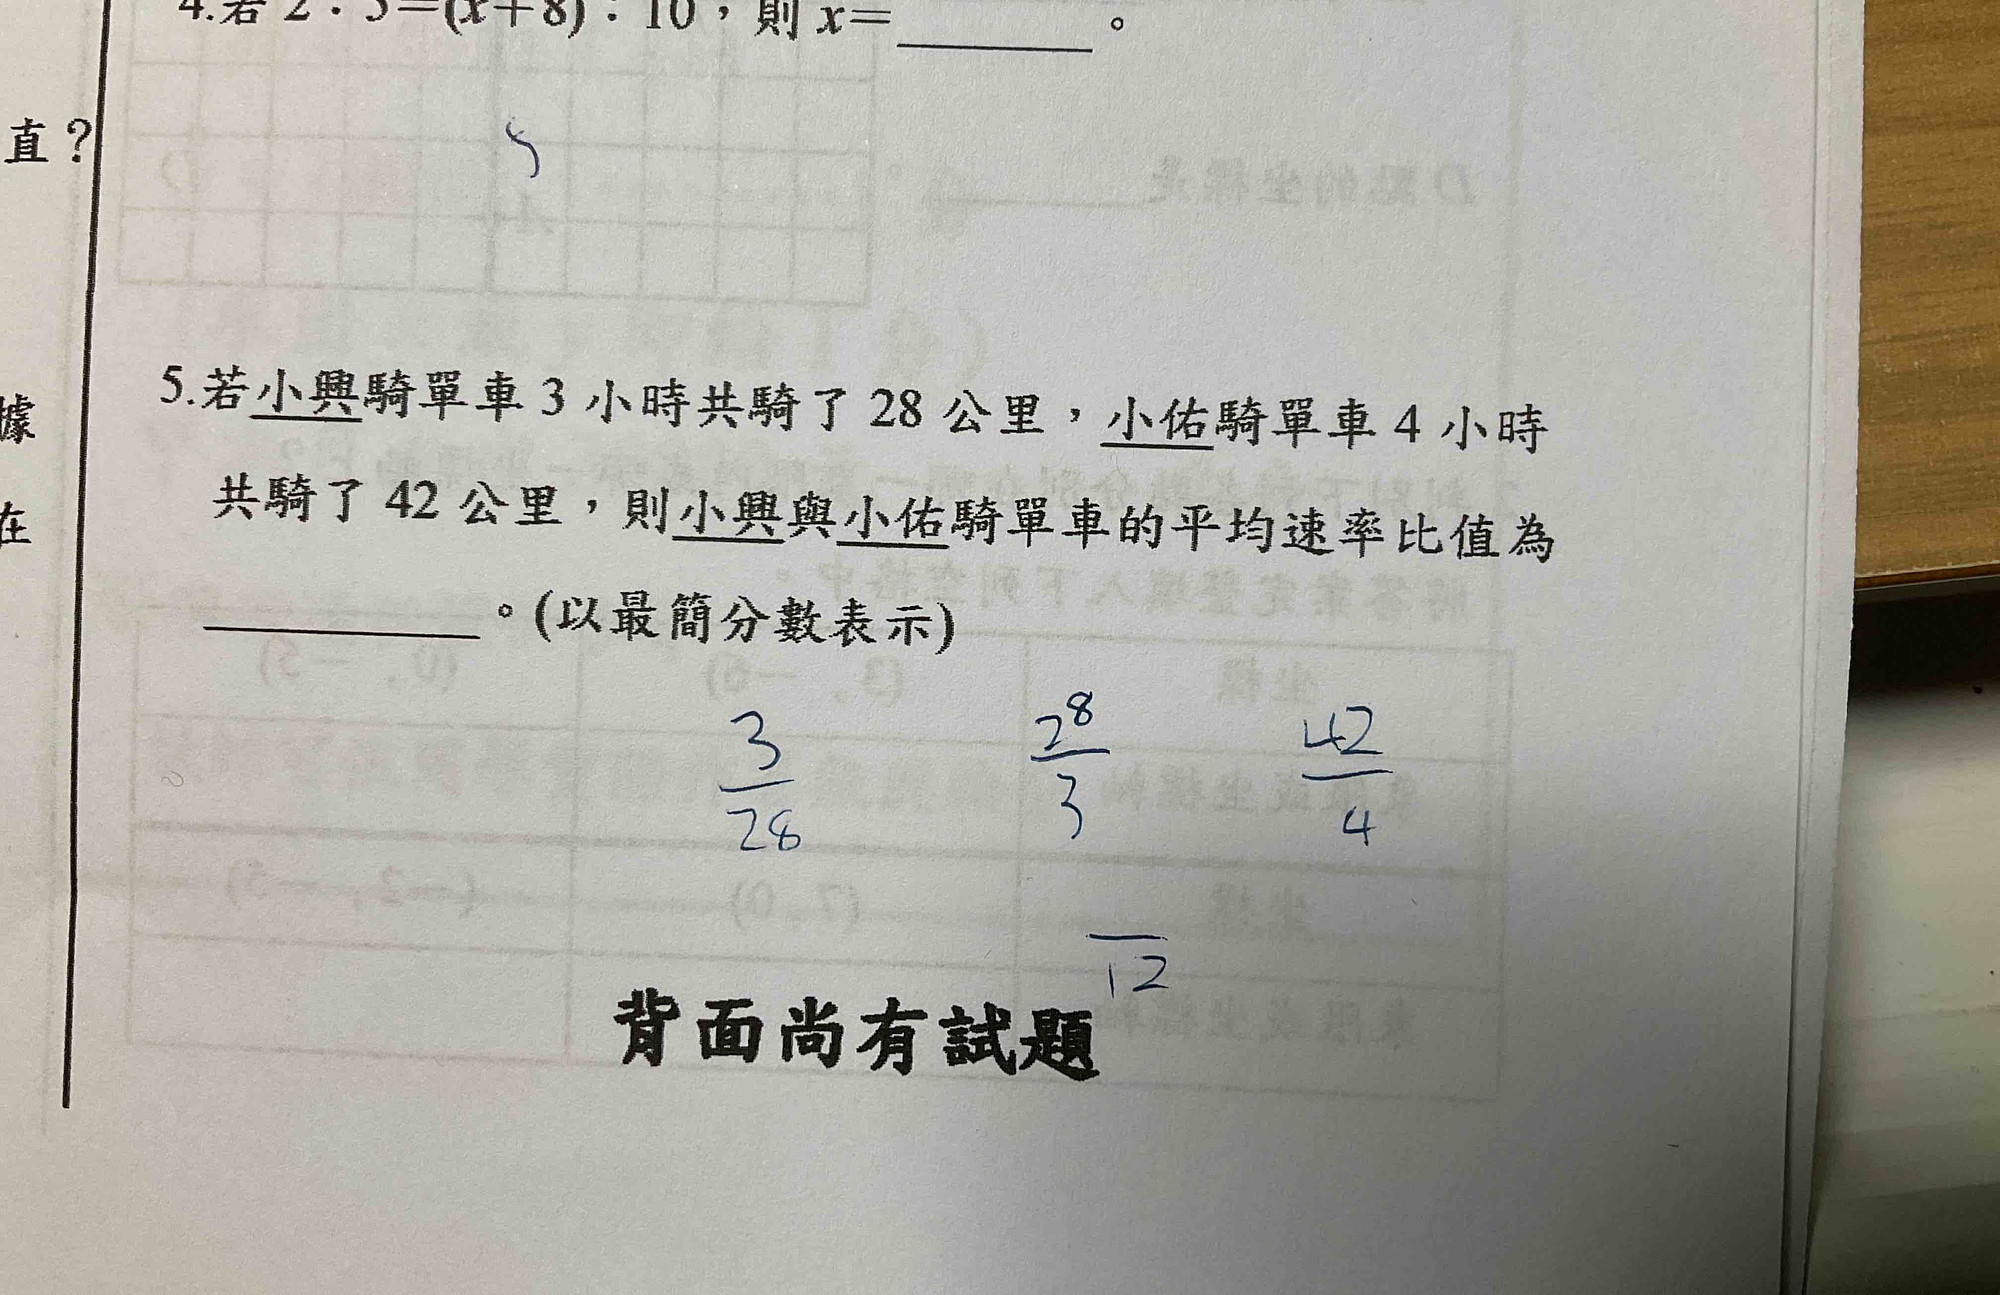 4.若 2：5=(x+8)：10，則 x=______。
直？
5.若小興騎單車 3 小時共騎了 28 公里，小佑騎單車 4 小時
據
共騎了 42 公里，則小興與小佑騎單車的平均速率比值為
在
______。(以最簡分數表示)
3/28 28/3 42/4
/12
背面尚有試題